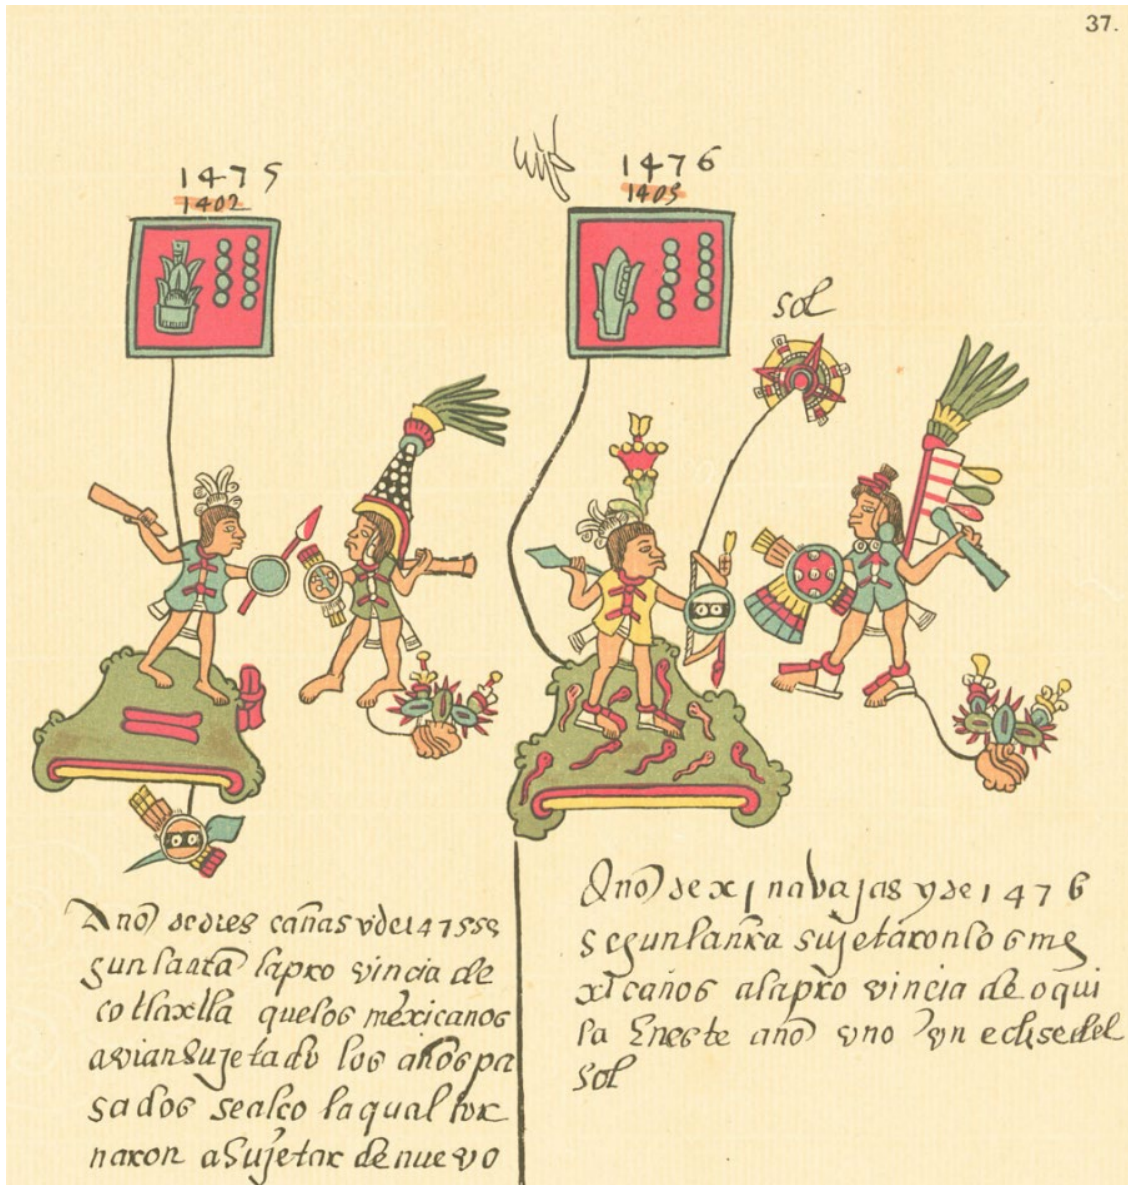 37.
1475
1402
1476
1403
sol
Año de dies cañas y de 1475 se
gun la nra la pro vincia de
cotlaxtla que los mexicanos
avian sujetado los años pa
sados se alço la qual tor
naron a sujetar de nuevo
Año de xj navajas y de 1476
segun la nra sujetaron los me
xicanos a la pro vincia de oqui
la En este año vno vn eclise del
sol